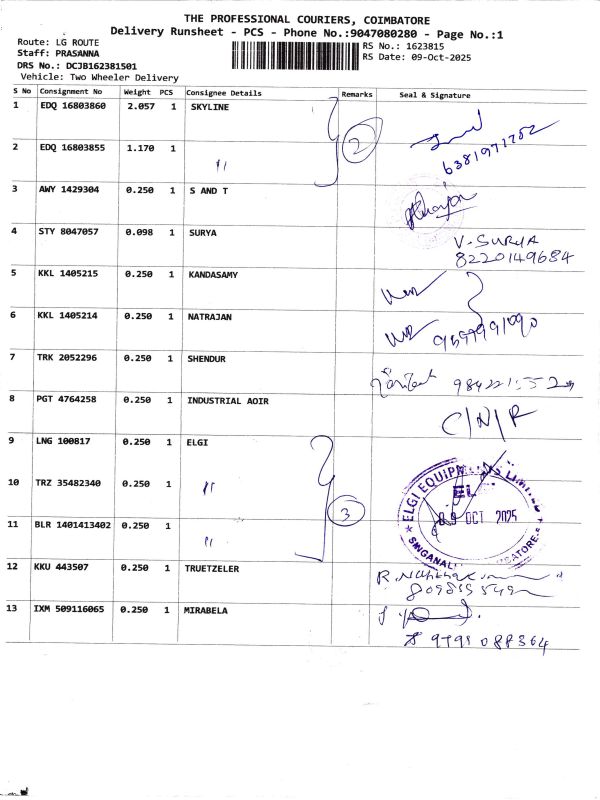 THE PROFESSIONAL COURIERS, COIMBATORE
Delivery Runsheet - PCS - Phone No.:9047080280 - Page No.:1
Route: LG ROUTE
RS No.: 1623815
Staff: PRASANNA
RS Date: 09-Oct-2025
DRS No.: DCJB162381501
Vehicle: Two Wheeler Delivery
S No Consignment No Weight PCS Consignee Details Remarks Seal & Signature
1 EDQ 16803860 2.057 1 SKYLINE
2
6381971752
2 EDQ 16803855 1.170 1 "
3 AWY 1429304 0.250 1 S AND T
4 STY 8047057 0.098 1 SURYA
V. SURYA
8220149684
5 KKL 1405215 0.250 1 KANDASAMY
6 KKL 1405214 0.250 1 NATRAJAN
7 TRK 2052296 0.250 1 SHENDUR
8 PGT 4764258 0.250 1 INDUSTRIAL AOIR
C/N/R
9 LNG 100817 0.250 1 ELGI
ELGI EQUIPMENTS LIMITED
10 TRZ 35482340 0.250 1 "
3
09 OCT 2025
11 BLR 1401413402 0.250 1 "
12 KKU 443507 0.250 1 TRUETZELER
13 IXM 509116065 0.250 1 MIRABELA
9791088364